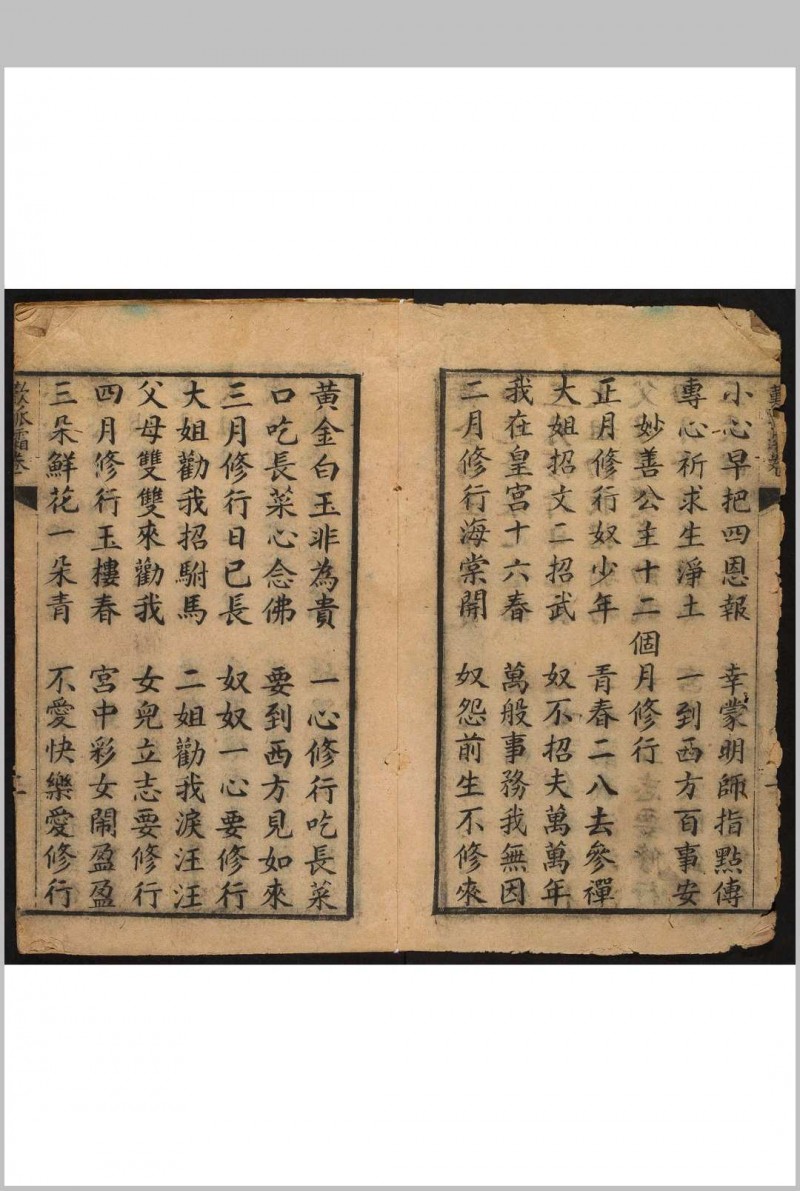 小心早把四恩報　幸蒙明師指點傳
專心祈求生淨土　一到西方百事安
妙善公主十二個月修行
正月修行奴少年　青春二八去參禪
大姐招文二招武　奴不招夫萬萬年
我在皇宮十六春　萬般事務我無因
二月修行海棠開　奴怨前生不修來
黃金白玉非為貴　一心修行吃長菜
口吃長菜心念佛　要到西方見如來
三月修行日已長　奴奴一心要修行
大姐勸我招駙馬　二姐勸我淚汪汪
父母雙雙來勸我　女兒立志要修行
四月修行玉樓春　宮中彩女鬧盈盈
三朵鮮花一朵青　不愛快樂愛修行